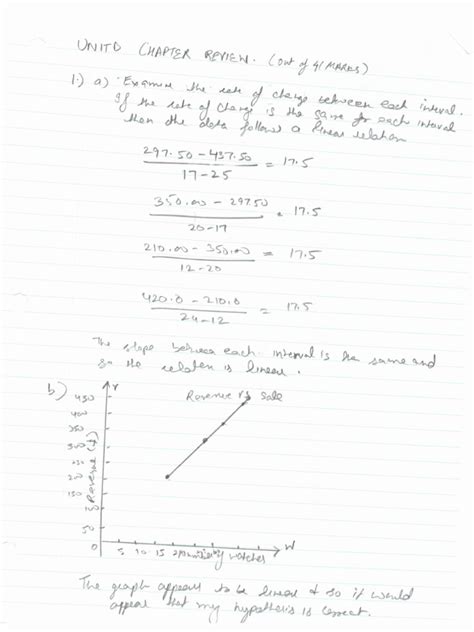 UNIT D CHAPTER REVIEW. (Out of 41 MARKS)
1.) a) Examine the rate of change between each interval.
If the rate of change is the same for each interval
then the data follows a linear relation
297.50 - 437.50 / 17 - 25 = 17.5
350.00 - 297.50 / 20 - 17 = 17.5
210.00 - 350.00 / 12 - 20 = 17.5
420.0 - 210.0 / 24 - 12 = 17.5
The slope between each interval is the same and
so the relation is linear.
b) r
Revenue vs Sale
450
400
350
300
200
150
50
0
Revenue ($)
5 10 15 number of watches W
The graph appears to be linear & so it would
appear that my hypothesis is correct.